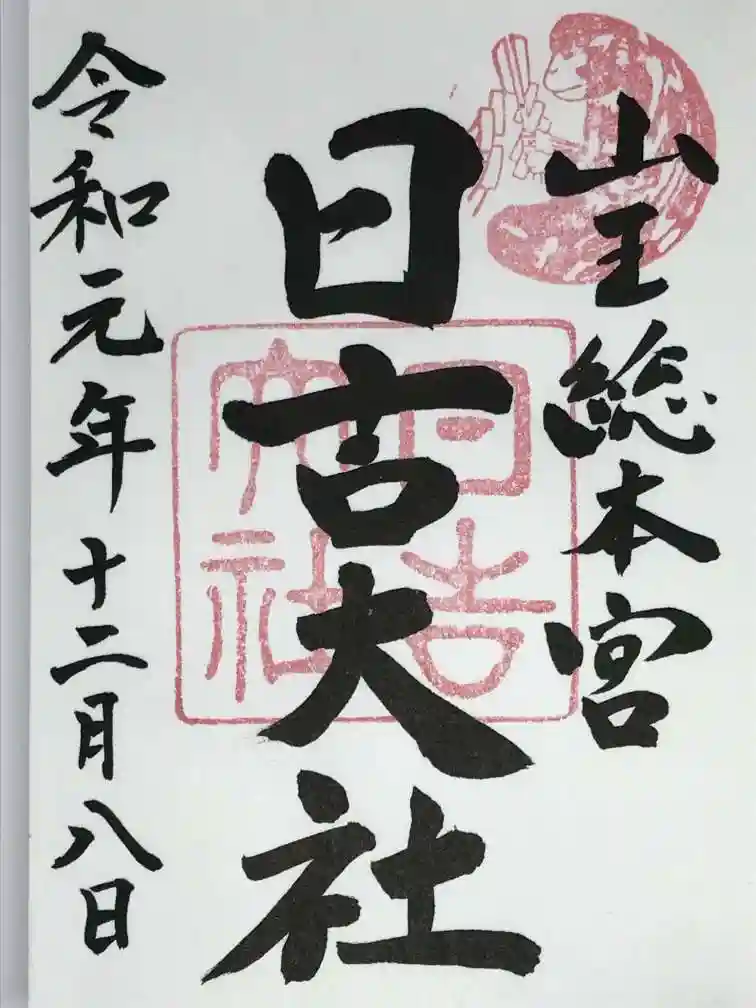 山王総本宮
日吉大社
日吉
大社
令和元年十二月八日